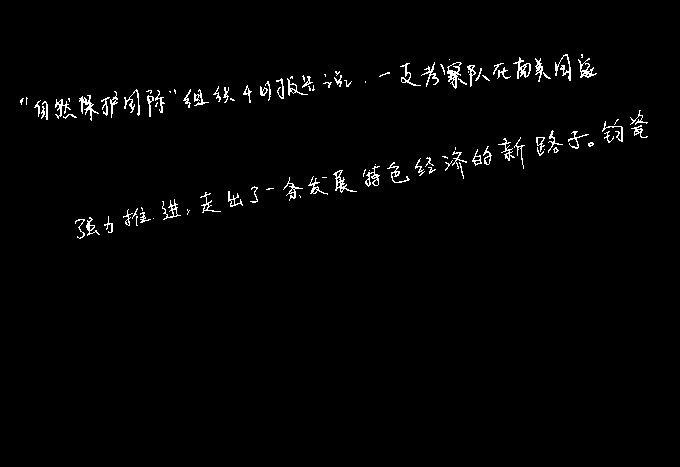 “自然保护国际”组织4日报告说，一支考察队在南美国家
强力推进，走出了一条发展特色经济的新路子。钧瓷